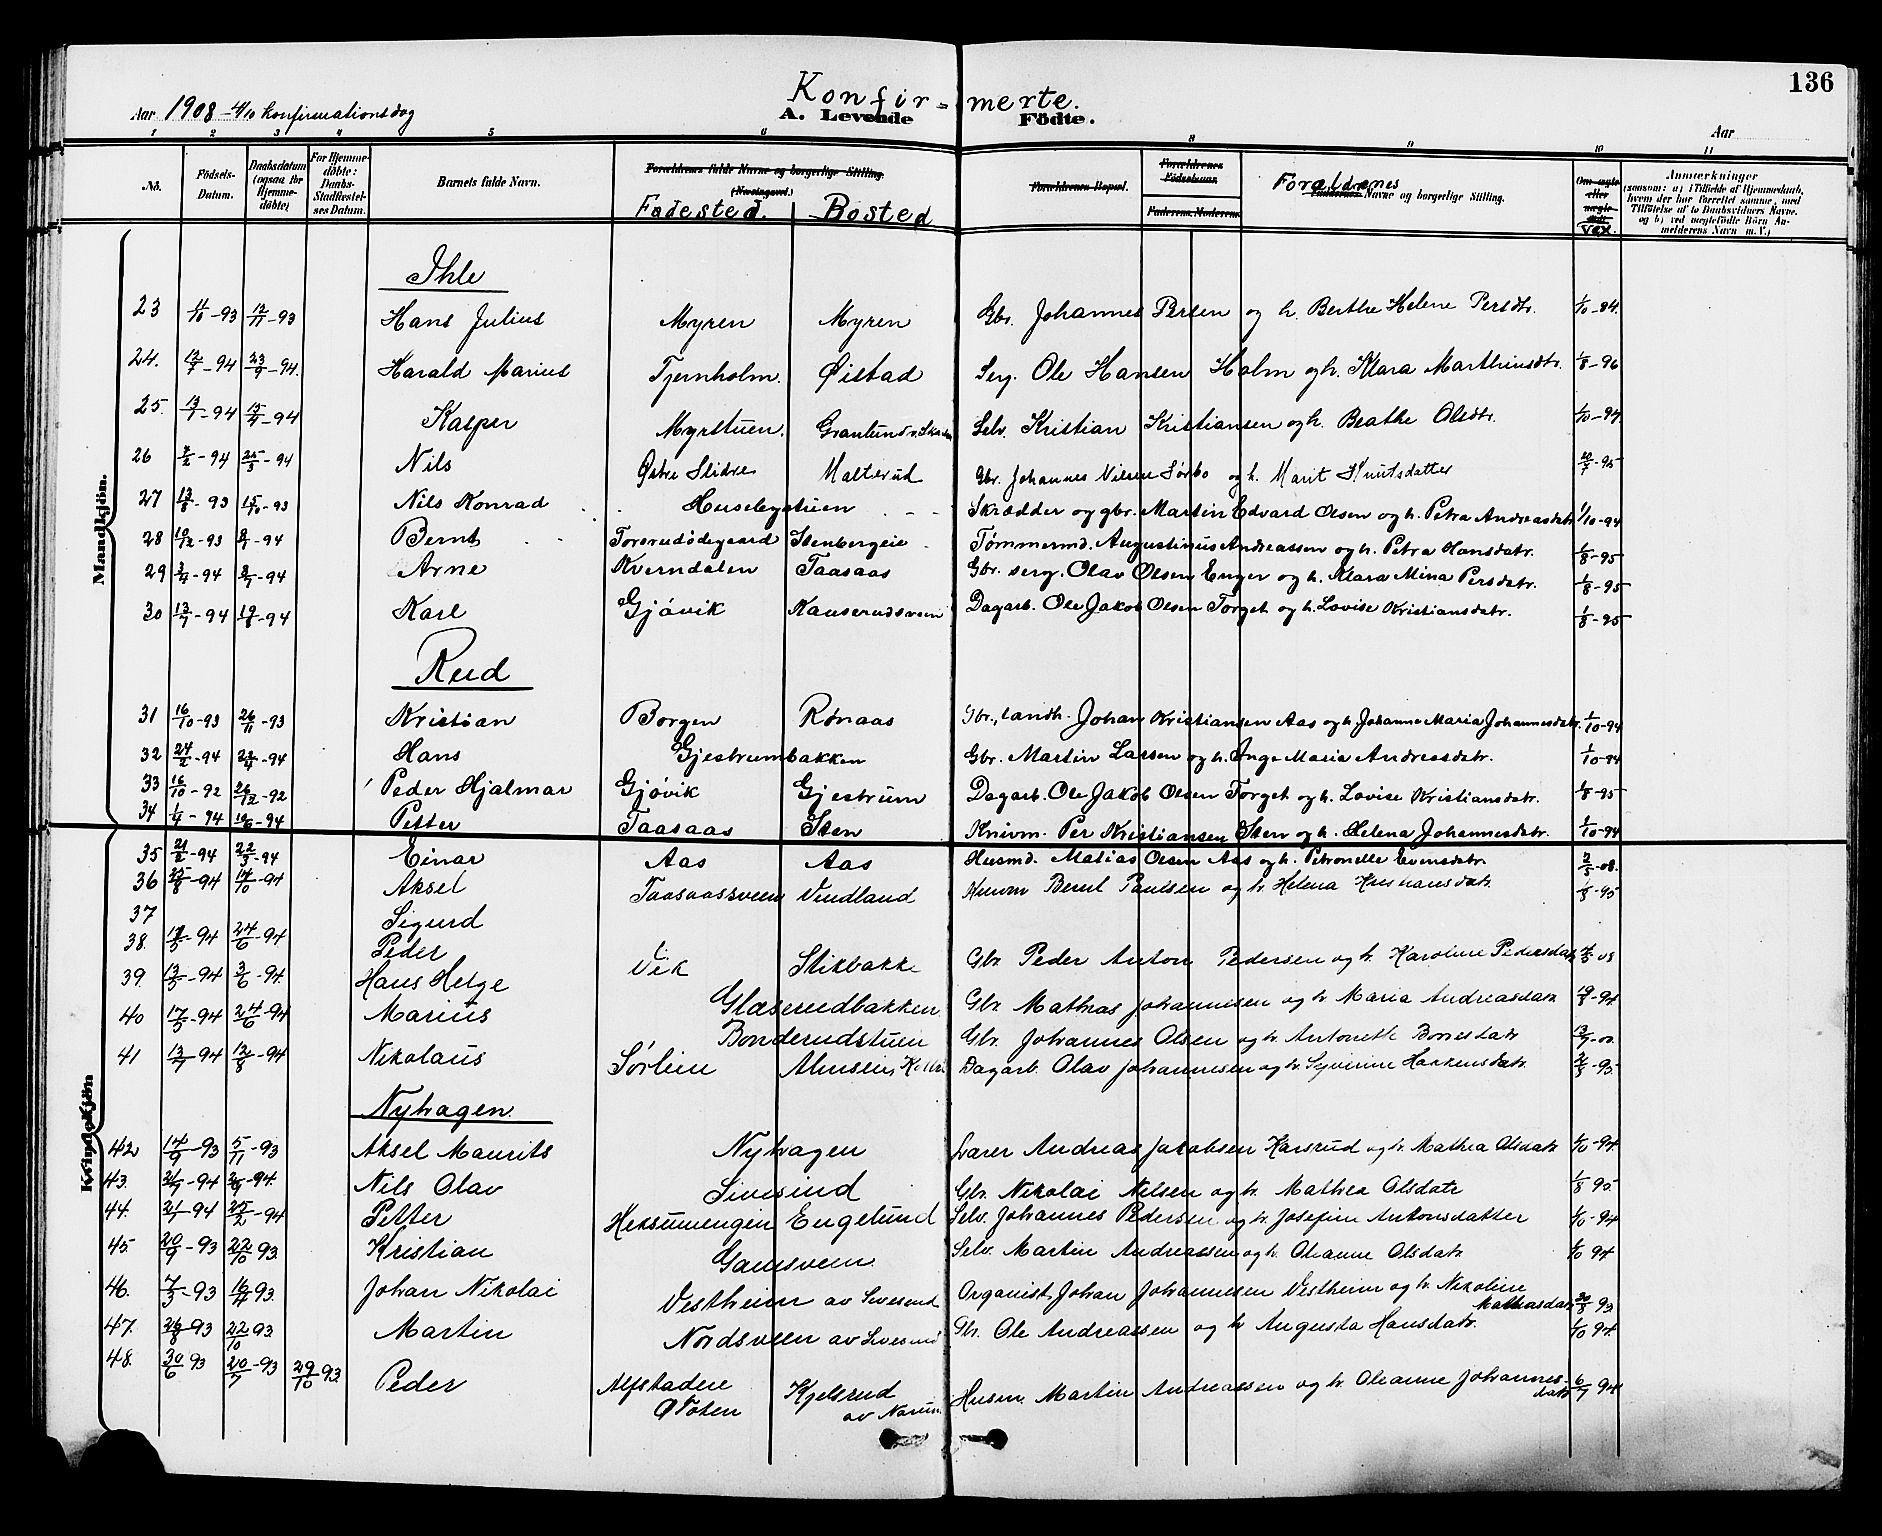 136
Aar 1908 - 4/10 Konfirmationsdag
Konfir-merte.
A. Levende Födte.
Aar
1 2 3 4 5 6 8 9 10 11
No. Födsels-Datum. Daabsdatum (ogsaa for Hjemme-döbte) For Hjemme-döbte: Daabs-Stadfæstel-ses Datum. Barnets fulde Navn. Forældrenes fulde Navne og borgerlige Stilling. Forældrenes Bopæl. Forældrenes Födselsaar. Faderens. Moderens. Forældrenes Navne og borgerlige Stilling. Vax.
Fødested. Bosted
Anmærkninger
(saasom: a) i Tilfælde af Hjemmedaab, hvem der har forrettet samme, med Tilföielse af to Daabsvidners Navne, og b) ved uægtefödte Börn Anmelderens Navn m.V.)
Mandkjön.
Ihle
23 11/10-93 12/11-93 Hans Julius Myren Myren Gbr. Johannes Persen og h. Berthe Helene Persdtr. 1/10-84.
24. 12/7-94 23/9-94. Harald Marius Tjernholm. Øistad Serg. Ole Hansen Holm og h. Klara Marthinusdtr. 1/8-96
25. 13/7-94 Kasper Myrstuen. Granlund Selv. Kristian Kristiansen og h. Beathe Olsdtr.
26 2/2-94 25/3-94 Nils Østre Slidre Malterud Gbr. Johannes Nilsen Sørbo og h. Marit Knutsdatter
27 13/8-93 15/10-93 Nils Konrad Husebystuen Skrædder og gbr. Martin Edvard Olsen og h. Petra Andreasdatr 1/10-94
28 10/12-93 Bernt Torsrudødegaard Stenbergeie Tømmermd. Augustinus Andreassen og h. Petra Hansdatr. 1/8-95
29 3/4-94 Arne Kverndalen Taasaas Gbr. serg. Olav Olsen Enger og h. Klara Mina Persdatr. 1/8-95
30 13/7-94 19/8-94 Karl Gjövik Kauserudsveen Dagarb. Ole Jakob Olsen Torget og h. Lovise Kristiansdatr. 1/8-95
Rud
31 16/10-93 26/11-93 Kristian Borgen Rønaas Gbr., landh. Johan Kristiansen Aas og h. Johanne Maria Johannesdatr. 1/10-94
32 24/2-94 22/4-94 Hans Gjestrumbakken Gbr. Martin Larsen og h. Inge Maria Andreasdatr. 1/10-94
33 16/10-92 26/12-92 Peder Hjalmar Gjövik Gjestrum Dagarb. Ole Jakob Olsen Torget og h. Lovise Kristiansdatr. 1/8-95
34 1/4-94 Petter Taasaas Sten Knivm. Per Kristiansen Sten og h. Helena Johannesdatr. 1/10-94
Kvindekjön
35 21/2-94 22/3-94 Einar Aas Aas Husmd. Matias Olsen Aas og h. Petronelle Evensdatr. 2/5-08.
36 25/8-94 14/10-94 Aksel Taasaassveen Vindland Bernt Paulsen og h. Helena 1/8-95
37 Sigurd
38. 94 24/6-94 Peder Vik Stikbakke Gbr. Peder Anton Pedersen og h. Karoline Pedersdatr
39. 13/5-94 3/6-94. Hans Helge Glæserudbakken Gbr. Mathias Johannesen og h. Maria Andreasdatr 19/8-94
40 17/5-94 24/6-94 Marius Bonderudstuen Gbr. Johannes Olsen og h. Antonette
41 13/7-94 12/8-94 Nikolaus Sørlien Dagarb. Olav Johannesen og h. Syverine Haakensdatr. 95.
Nyhagen
42 14/9-93 5/11-93 Aksel Maurits Nyhagen Lærer Andreas Jakobsen Karsrud og h. Mathea Olsdatr 1/10-94.
43. 94 94. Nils Olav Sivesind Gbr. Nikolai Nilsen og h. Mathea Olsdatr 1/8 95.
44. 21/1-94 25/2-94 Petter Heksumengen Engelund Selv. Johannes Pedersen og h. Josefine Antonsdatter 1/10-94
45. 20/9-93 22/10 93. Kristian Gaardsveen Selv. Martin Andreassen og h. Oleanne Olsdatr 1/10 94
46. 7/3-93 16/4 93. Johan Nikolai Vestheim av Sivesind Organist Johan Johannesen Vestheim og h. Nikoline Mathiasdatr 20/8 93.
47. 26/8-93 22/10 93 Martin Nordsveen av Sivesind Gbr. Ole Andreassen og h. Augusta Hansdatr. 1/10 94
48. 30/6 93 20/7-93 29/10 93. Peder Alfstadeie Ø Toten Kjelsrud av Narum Husm. Martin Andreassen og h. Oleanne Johannesdatr 6/7 94